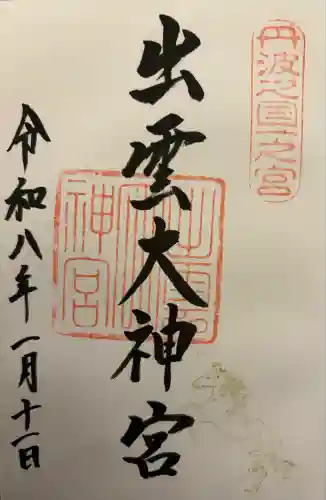 丹波之國一之宮
出雲大神宮
令和八年一月十一日